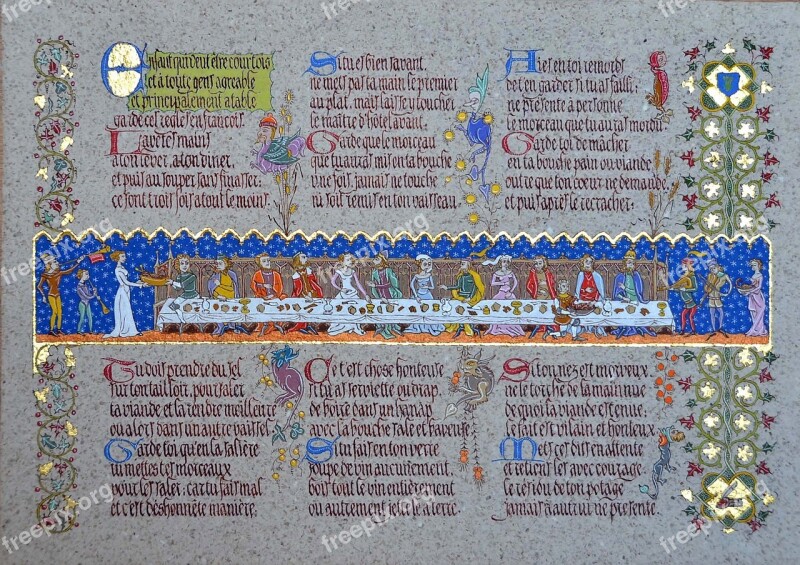 Enfant qui veut être courtois
et à toute gens agreable
et principalement a table
garde ces regles en francois.
Lave tes mains
a ton lever, a ton diner,
et puis au souper sans finasser;
ce sont trois fois a tout le moins.
Si tu es bien savant,
ne mets pas ta main le premier
au plat, mais laisse y toucher
le maître d'hôtel avant.
Garde que le morceau
que tu auras mis en ta bouche
une fois, jamais ne touche
ni soit remis en ton vaisseau.
Aies en toi remords
de t'en garder si tu as failli;
ne présente à personne
le morceau que tu auras mordu
Garde toi de mâcher
en ta bouche pain ou viande
outre que ton coeur ne demande,
et puis après le recracher.
Tu dois prendre du sel
sur ton tailloir, pour saler
ta viande et la rendre meilleure
ou alors dans un autre vaissel
Garde toi qu'en ta salière
tu mettes tes morceaux
pour les saler: car tu fais mal
et c'est deshonnête manière.
Ce t'est chose honteuse
si tu as serviette ou drap
de boire dans un hanap
avec la bouche sale et baveuse
Si tu fais en ton verre
soupe de vin aucunement,
bois tout le vin entièrement
ou autrement jette le à terre.
Si ton nez est morveux
ne le torche de la main nue
de quoi ta viande est tenue;
le fait est vilain et honteux.
Mets ces dits en attente
et retiens les avec courage
le résidu de ton potage
jamais à autrui ne présente.
freepix.org